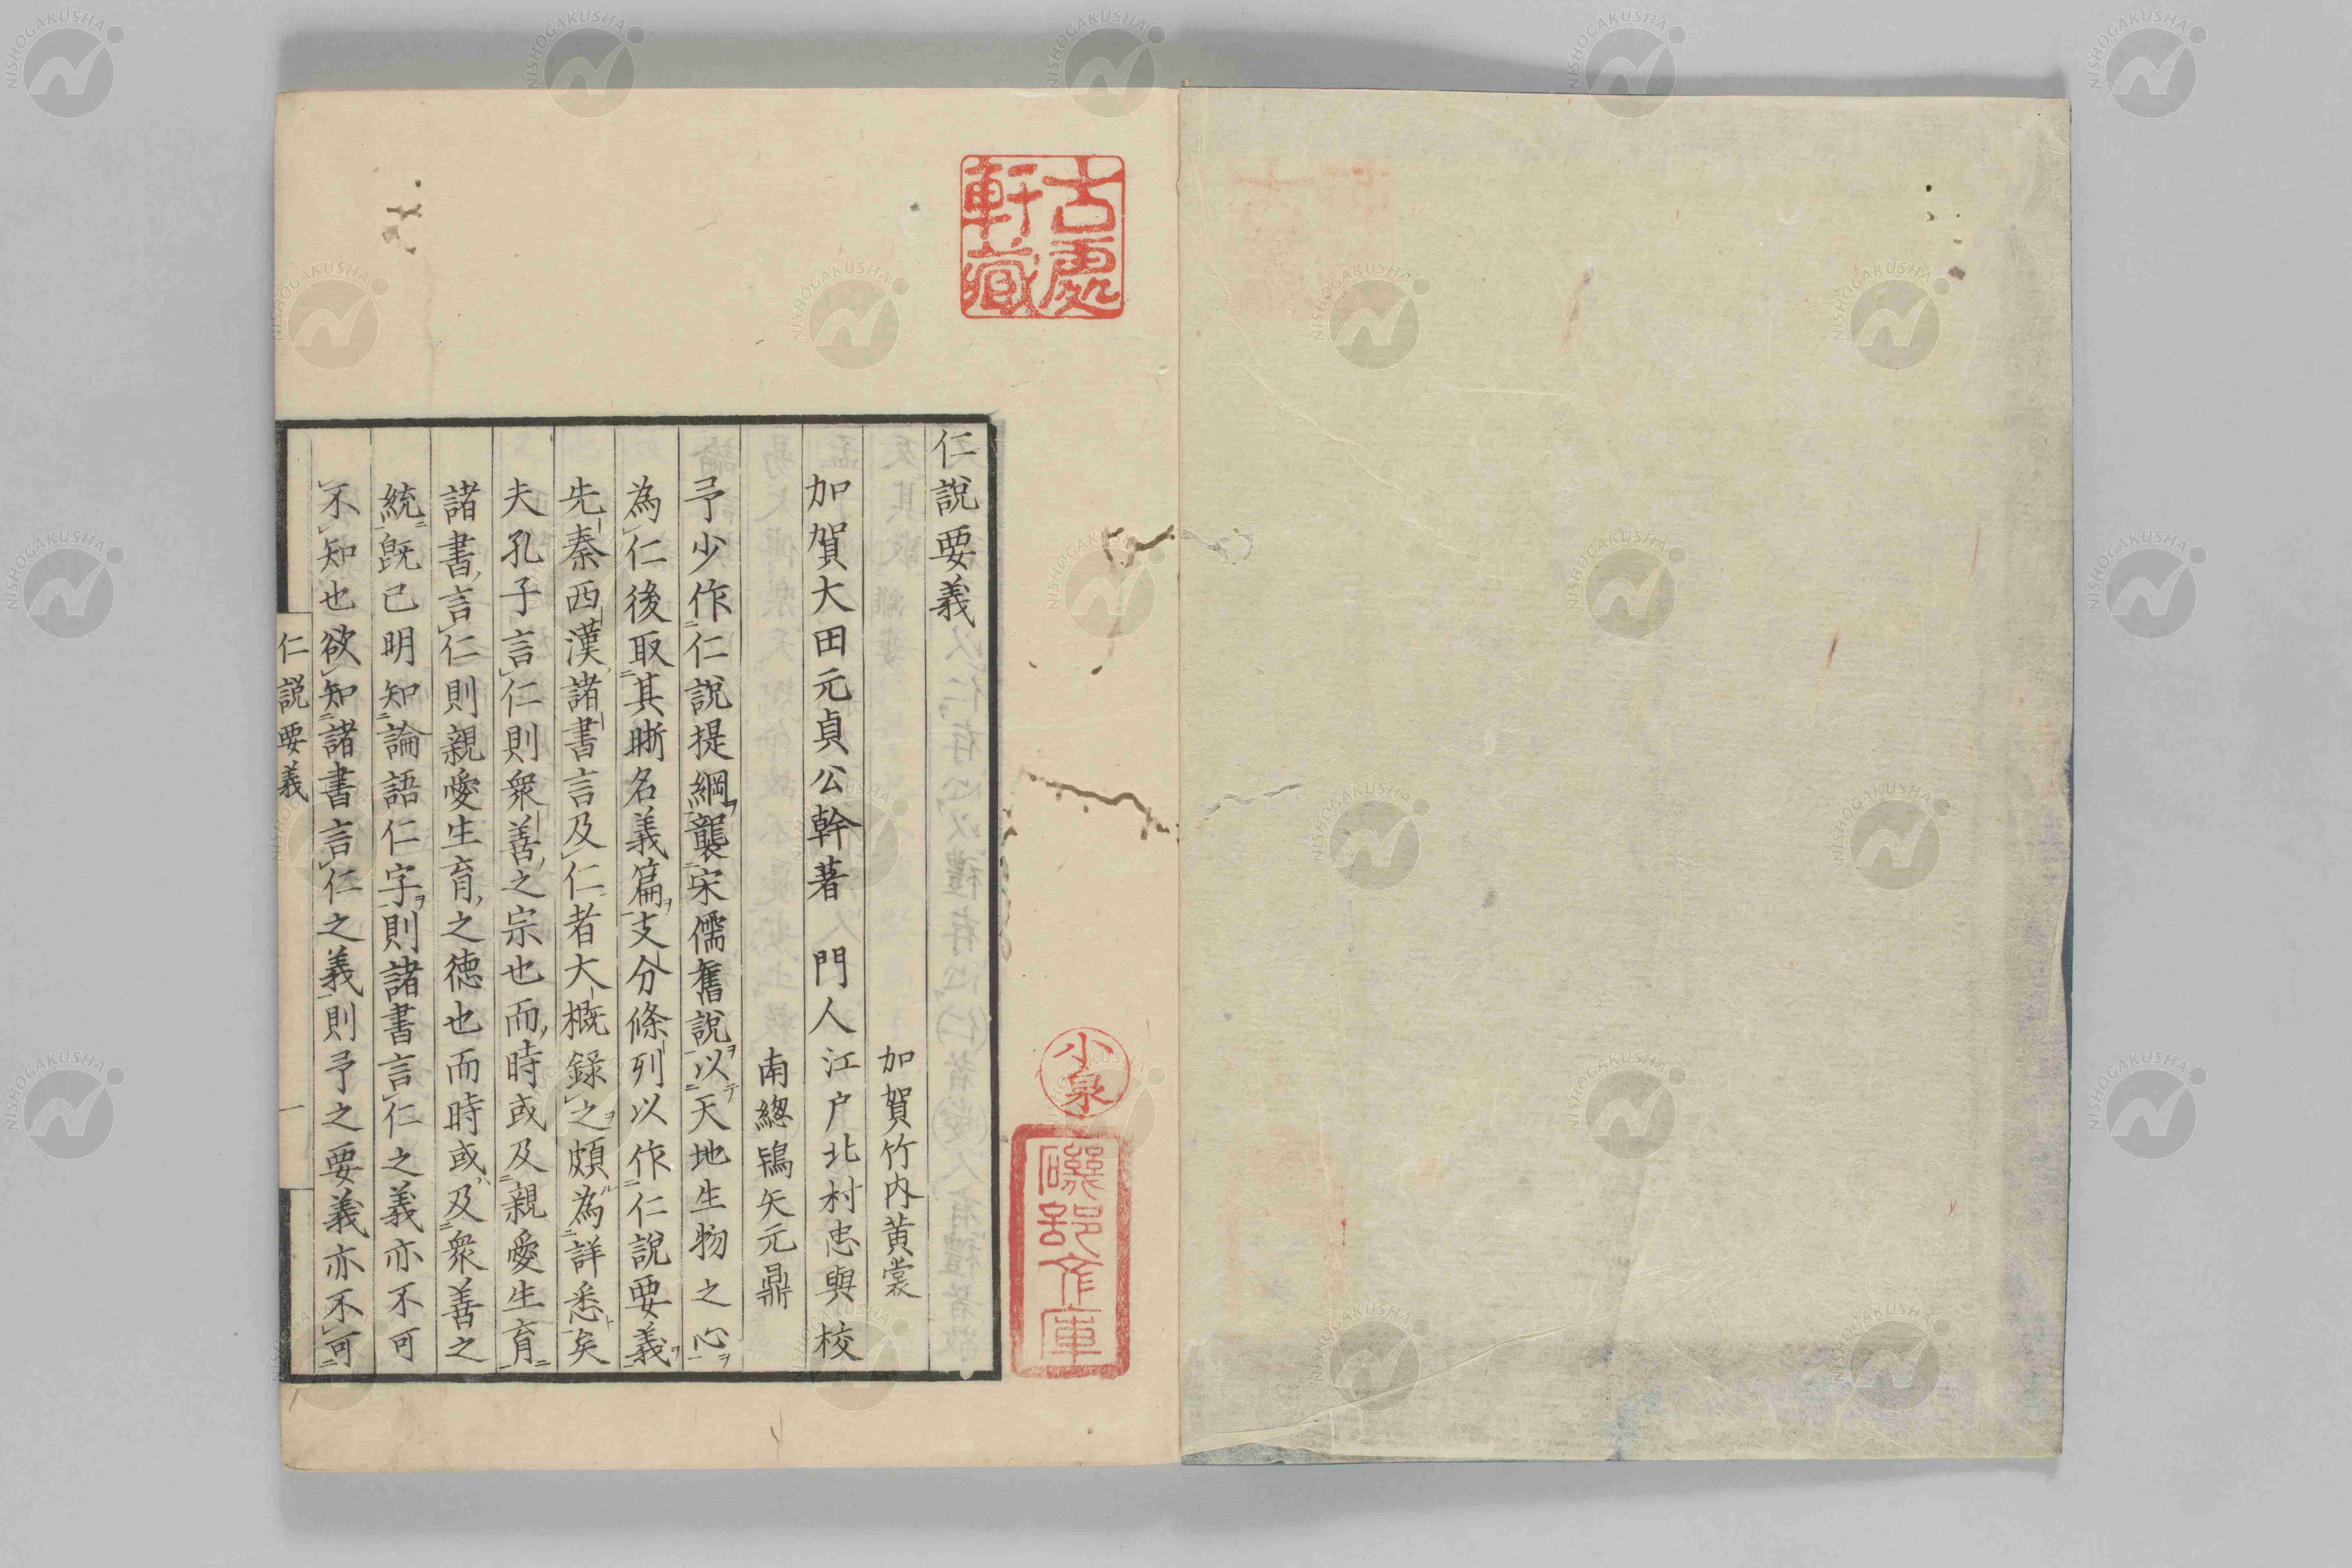 古處
軒藏
小泉
磯部文庫
仁說要義
加賀竹内黄裳
加賀大田元貞公幹著　門人江戸北村忠興校
南緫鵭矢元鼎
予少作仁說提綱襲宋儒舊說以天地生物之心
為仁後取其晣名義篇支分條列以作仁說要義
先秦西漢諸書言及仁者大概錄之頗為詳悉矣
夫孔子言仁則衆善之宗也而時或及親愛生育
諸書言仁則親愛生育之德也而時或及衆善之
統旣已明知論語仁字則諸書言仁之義亦不可
不知也欲知諸書言仁之義則予之要義亦不可
仁說要義
一
NISHOGAKUSHA